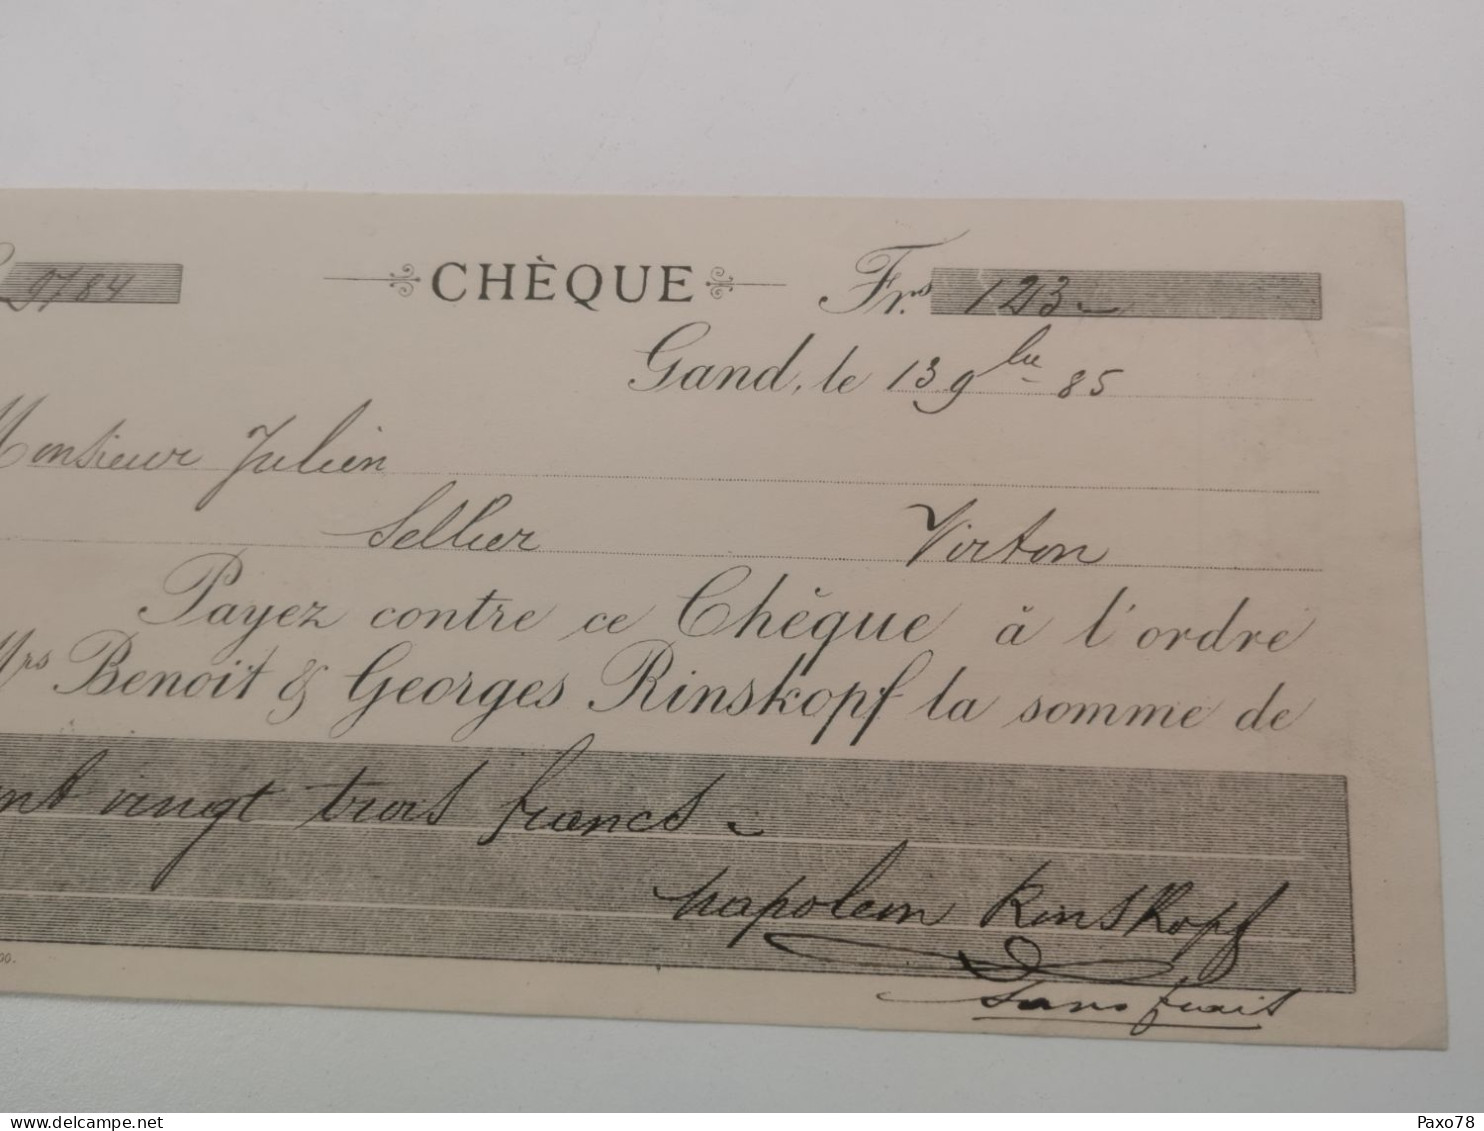 2784 CHÈQUE Frs. 123
Gand, le 13 9bre 85
Monsieur Julien
Sellier Virton
Payez contre ce Chèque à l'ordre
Mrs Benoit & Georges Rinskopf la somme de
ent vingt trois francs
Napoleon Rinskopf
Sans frais
00.
Paxo78